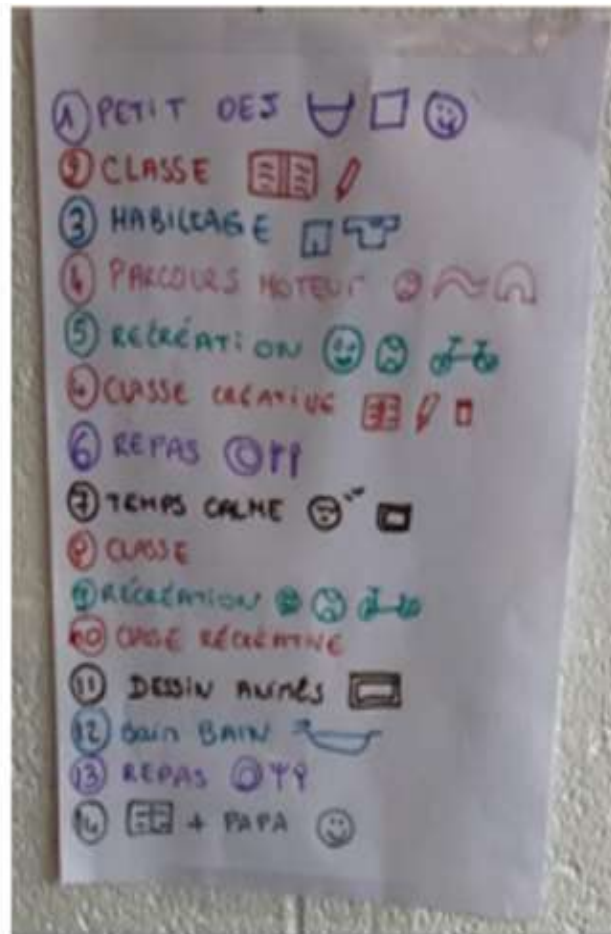 1 PETIT DEJ
2 CLASSE
3 HABILLAGE
4 PARCOURS MOTEUR
5 RECRÉATION
6 CLASSE CRÉATIVE
6 REPAS
7 TEMPS CALME
8 CLASSE
9 RÉCRÉATION
10 CLASSE RÉCRÉATIVE
11 DESSIN ANIMÉS
12 Bain BAIN
13 REPAS
14 + PAPA